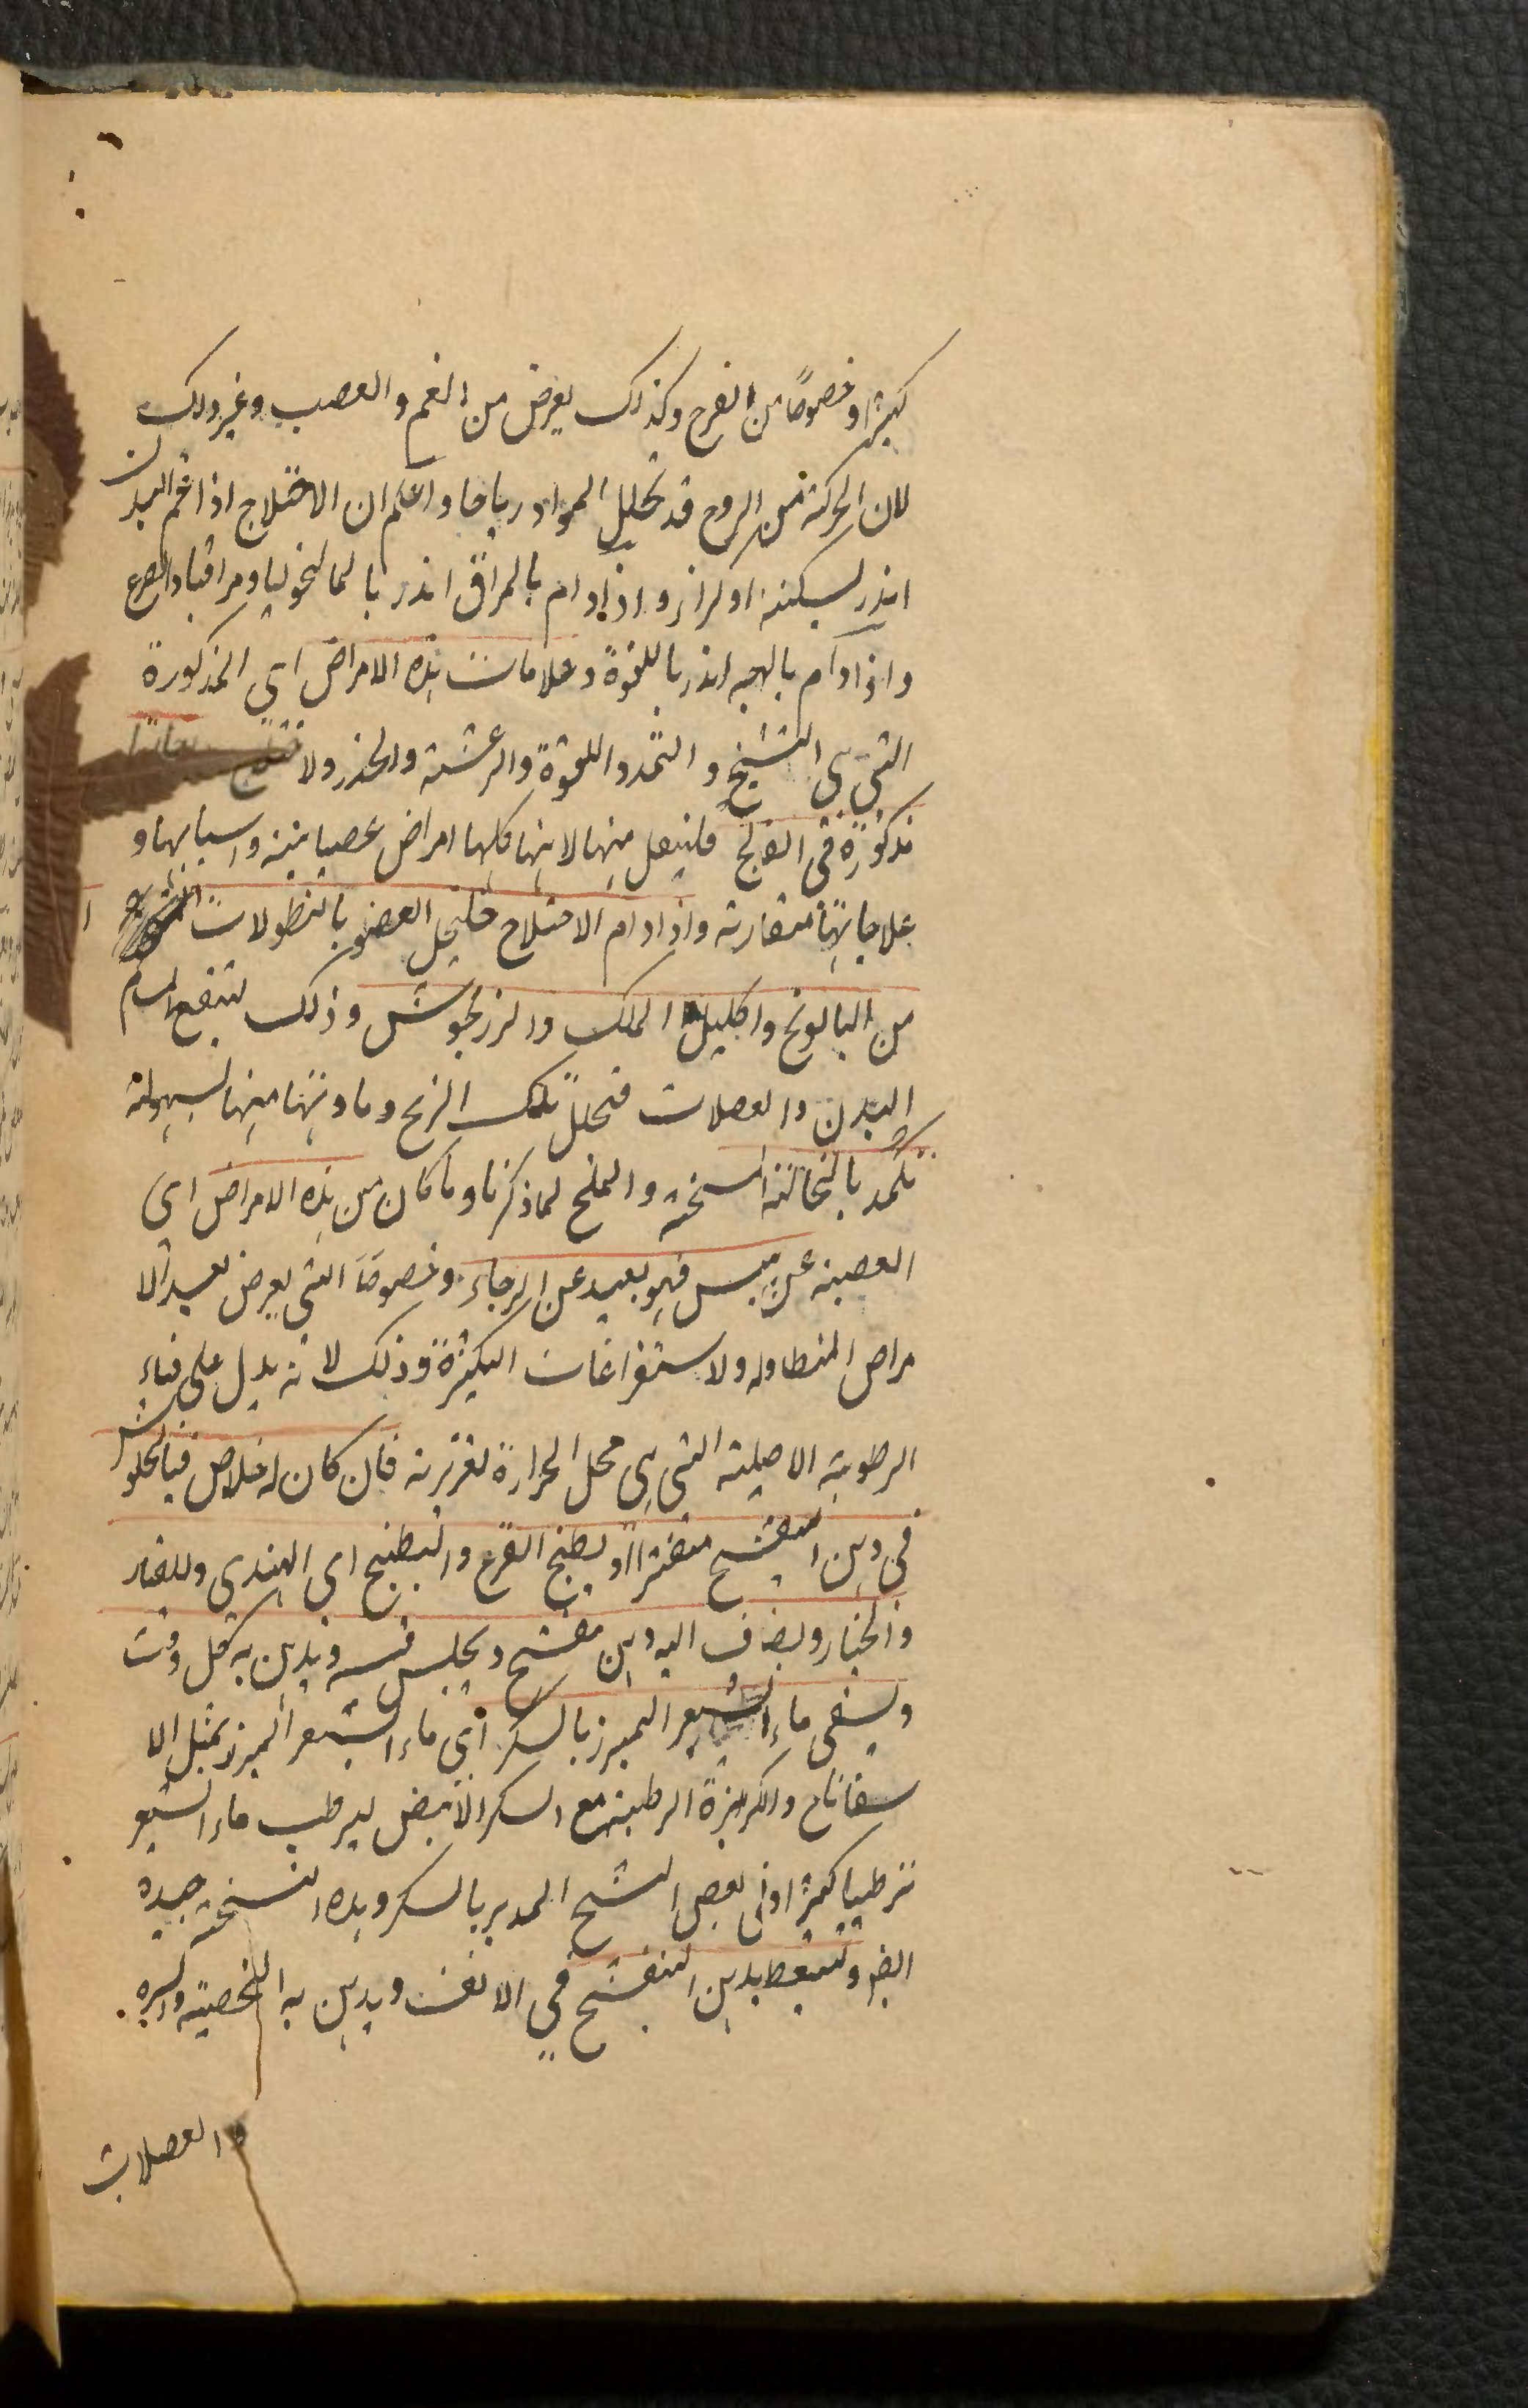 كثيرا وخصوصًا من الفرح وكذلك يعرض من الغم والغضب وغير ذلك
لان الحركة من الروح قد تحلل المواد رياحا واعلم ان الاختلاج اذا عم البدن
انذر بسكتة او كزاز واذا دام بالمراق انذر بالمالنخوليا ومراقيا والصرع
واذا دام بالوجه انذر باللقوة وعلامات هذه الامراض اي المذكورة
التي هي التشنج والتمدد واللقوة والرعشة والخدر والاختلاج
مذكورة في الفالج فلينقل منها لانها كلها امراض عصبانية واسبابها و
علاجاتها متقاربة واذا دام الاختلاج فليحل العضو بالنطولات
من البابونج واكليل الملك والمرزنجوش وذلك لتنفتح مسام
البدن والعضلات فتحلل تلك الريح ومادتها منها لسهولة
تكمد بالنخالة المسخنة والملح لما ذكرنا وما كان من هذه الامراض اي
العصبية عن يبس فهو بعيد عن الرجاء وخصوصًا التي يعرض بعيد الا
مراض المتطاولة ولاستفراغات الكثيرة وذلك لانه يدل على فناء
الرطوبة الاصلية التي هي محل الحرارة لغريزية فان كان له خلاص فبالجلوس
في دهن البنفسج مفترا او بطبخ القرع والبطيخ اي الهندي وللقثاء
والخيار ويضاف اليه دهن بنفسج ويجلس فيه ويدهن به كل وقت
ويسقى ماء الشعير المبرز بالسكر اي ماء الشعير المبرز بمثل الا
سفاناخ والكزبرة الرطبة مع السكر الابيض ليرطب ماء الشعير
ترطيبا كثيرا وفي بعض النسخ المدبر بالسكر وهذه النسخة جيدة
ايضا وتسعط بدهن البنفسج في الانف ويدهن به الخصية والسرة
والعضلات